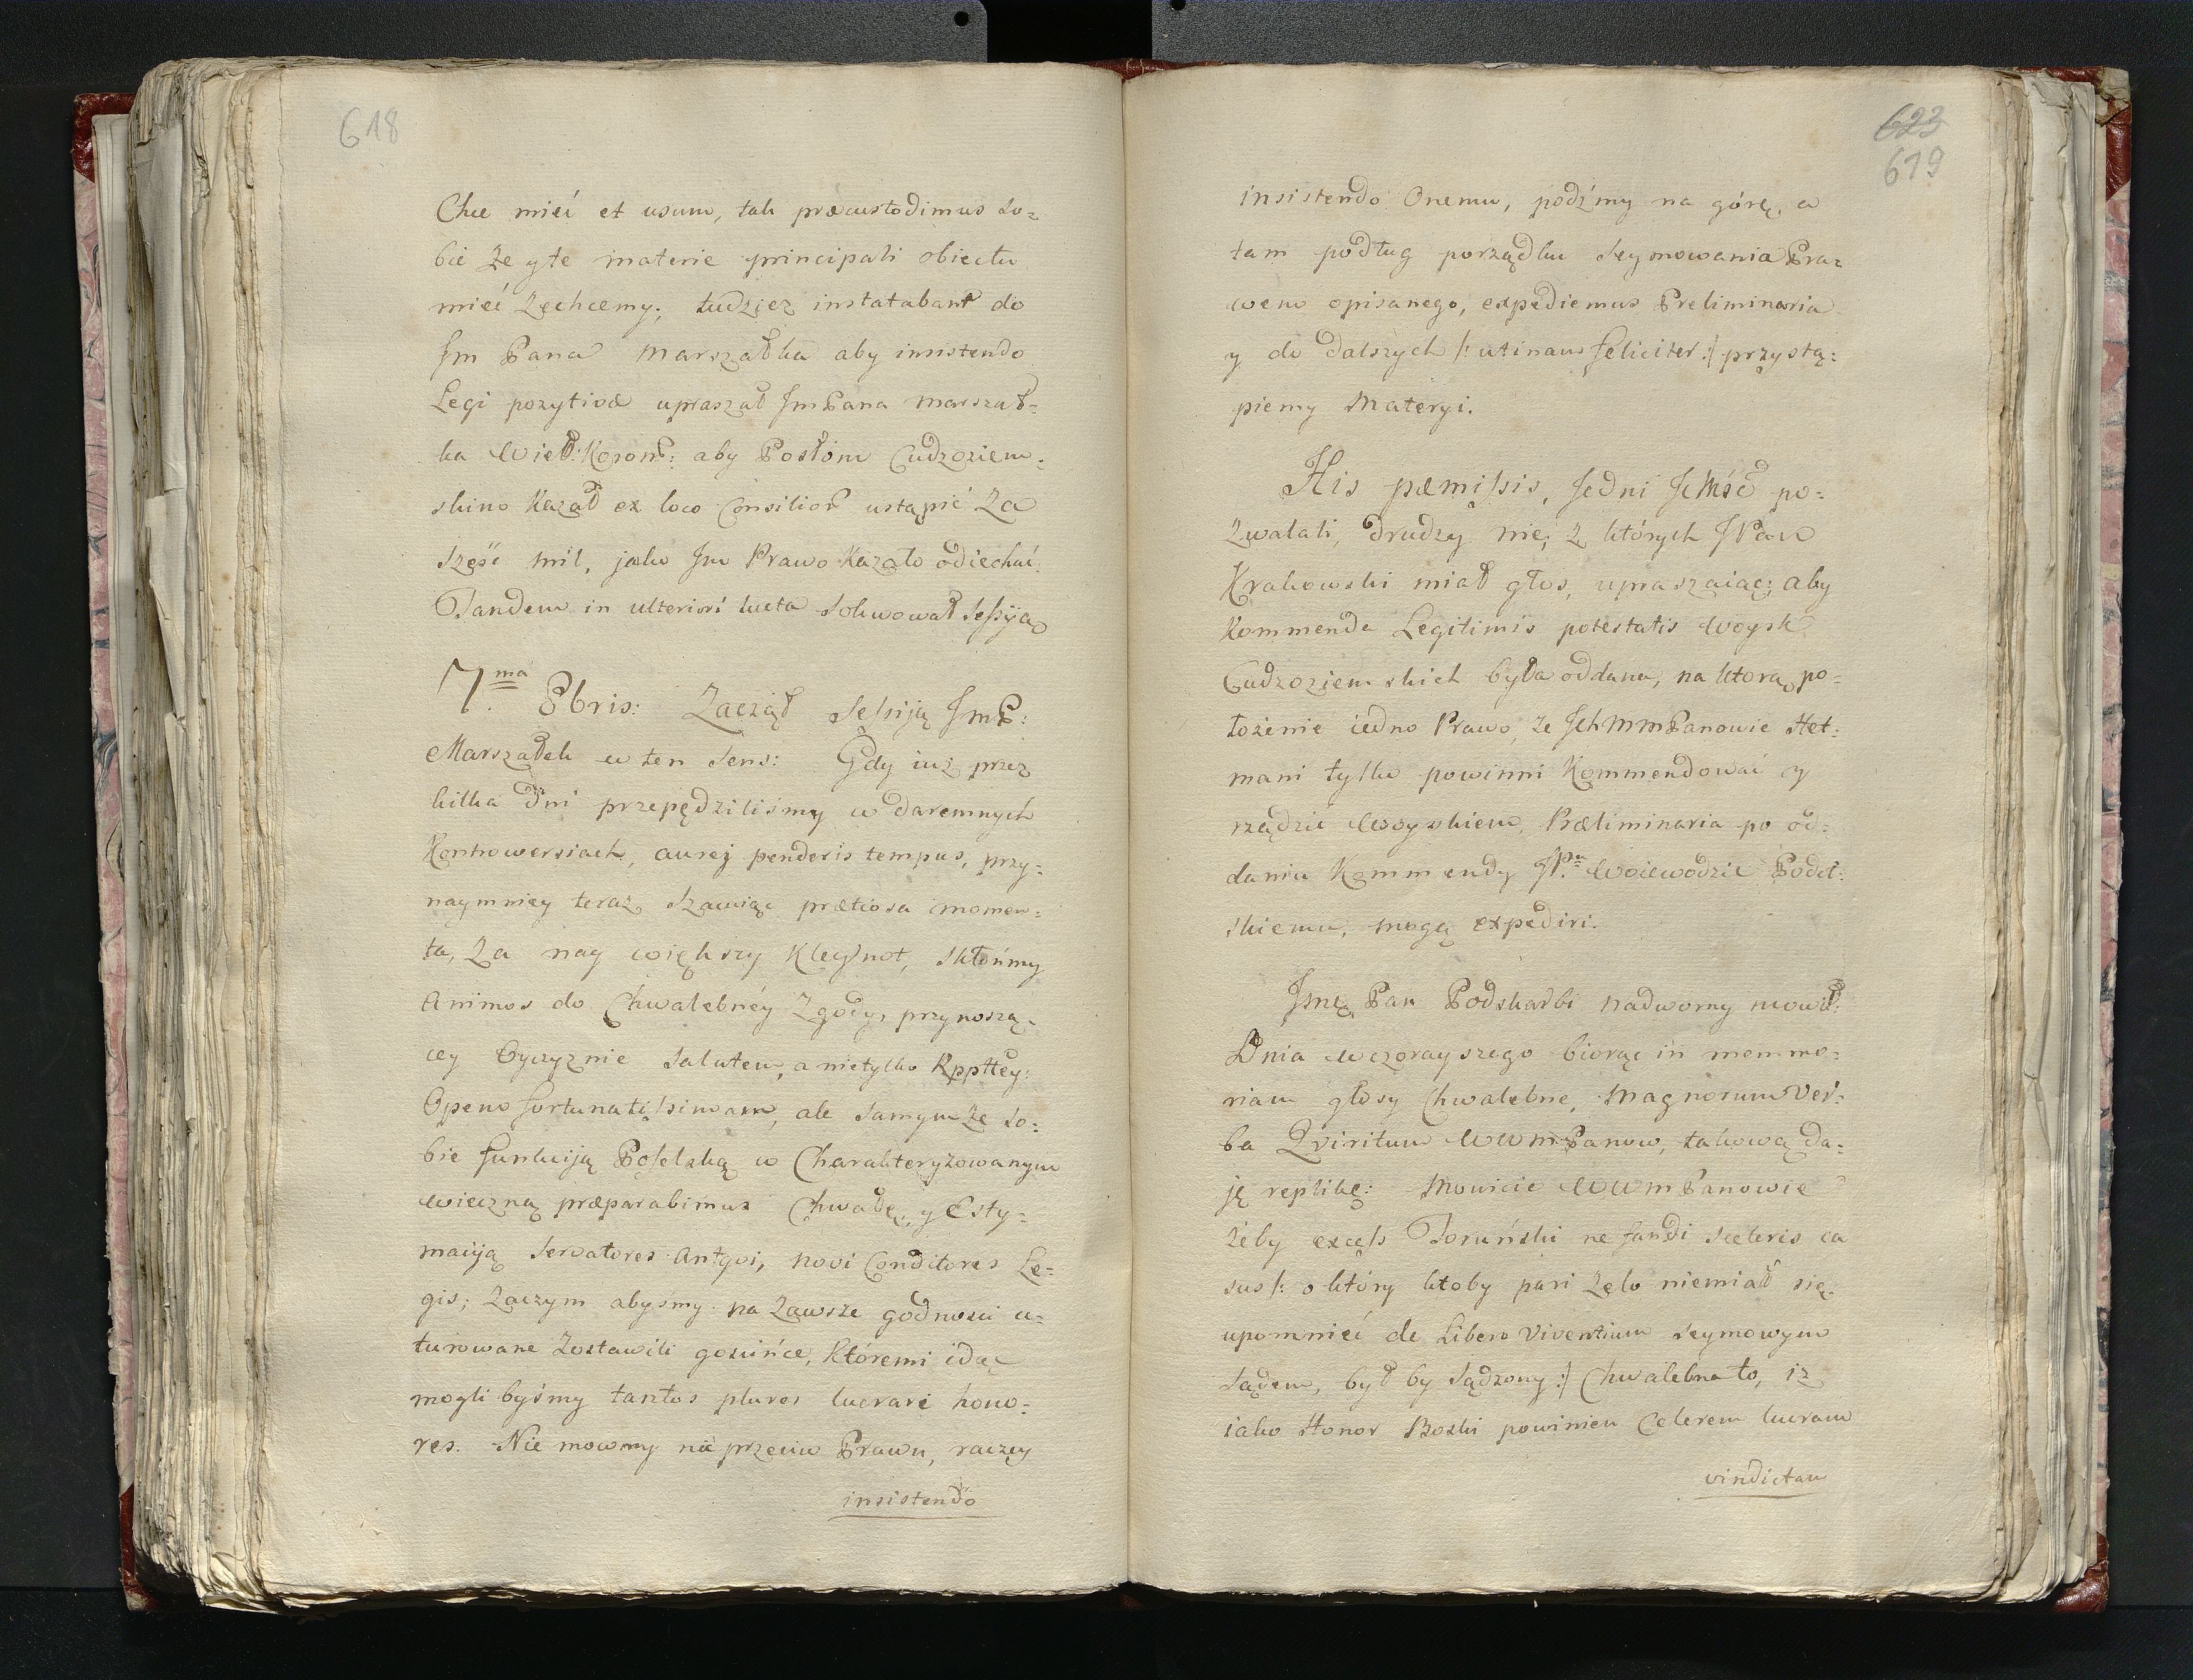 618
Chce mieć et usum, tak præcustodimus so=
bie że yte materie principali obiectu
mieć zechcemy; tudzież instatabant do
Jm Pana Marszałka aby insistendo
Legi pozytivæ upraszał JmPana Marszał=
ka Wiel: Koron: aby Posłóm Cudzoziem=
skim kazał ex loco Consilior ustąpić za
sześć mil, jako Jm Prawo kazało odiechać.
Tandem in ulteriori lucta solwował Seſsyją
7.ma 8bris: Zaczął Seſsiją JmP:
Marszałek w ten sens: Gdy iuż przez
kilka dni przepędziliśmy w daremnych
Kontrowersiach, aurej penderis tempus, przy=
naymniey teraz szawiąc prætiosa momen=
ta, za nay większy Kleynot, skłońmy
Animos do Chwalebnéy Zgody, przynoszą=
cey Oyczyznie Salutem, a nietylko Rppttey:
Opem fortunatiſsimam, ale samym że so=
bie funkciją Poselską w Charakteryzowanym
wieczną præparabimus Chwałę, y Esty=
maciją Servatores Antqvi, novi Conditores Le=
gis; Zaczym abysmy na zawsze godnosci u=
turowane zostawili gosćińce, któremi idąc
mogli byśmy tantos plures lucrari hono=
res. Nie mowmy nic przeciw Prawu, raczey
insistendo
623
619
insistendo Onemu, podźmy na górę, a
tam podług porządku Seymowania Pra=
wem opisanego, expediemus Preliminaria
y do dalszych /: utinam feliciter :/ przystą=
piemy Materyi.
His pæmiſsis, Jedni Jchmść po=
zwalali, drudzy nie; z których JPan
Krakowski miał głos, upraszaiąc; aby
Kommenda Legitimis potestatis woysk
Cudzoziemskich była oddana, na którą po=
łożenie iedno Prawo, że JchMmPanowie Het=
mani tylko powinni Kommendować y
rządzić woyskiem, Præliminaria po od=
daniu Kommendy JP.nu Woiewodzie Podol:
skiemu, mogą expediri.
Jmć Pan Podskarbi Nadworny mowił:
Dnia wczorayszego biorąc in memmo=
riam głosy Chwalebne, Magnorum Ver=
ba Qviritum WWmPanow, takową da=
ję replikę: Mowicie WWmPanowie
żeby exceſs Toruński nefandi sceleris ca
sus /: o który ktoby pari zelo niemiał się
upomnieć de Libero Viventium Seymowym
Sądem, był by Sądzony :/ Chwalebna to, iz
iako Honor Boski powinien Celerem lucram
vindictam